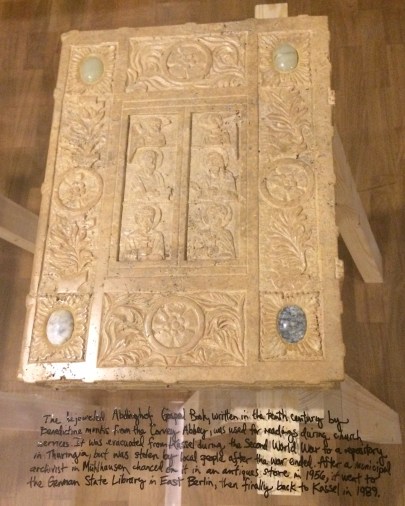 The bejeweled Abdinghof Gospel Book, written in the tenth century by
Benedictine monks from the Corvey Abbey, was used for readings during church
services. It was evacuated from Kassel during the Second World War to a repository
in Thuringia, but was stolen by local people after the war ended. After a municipal
archivist in Mühlhausen chanced on it in an antiques store in 1956, it went to
the German State Library in East Berlin, then finally back to Kassel in 1989.